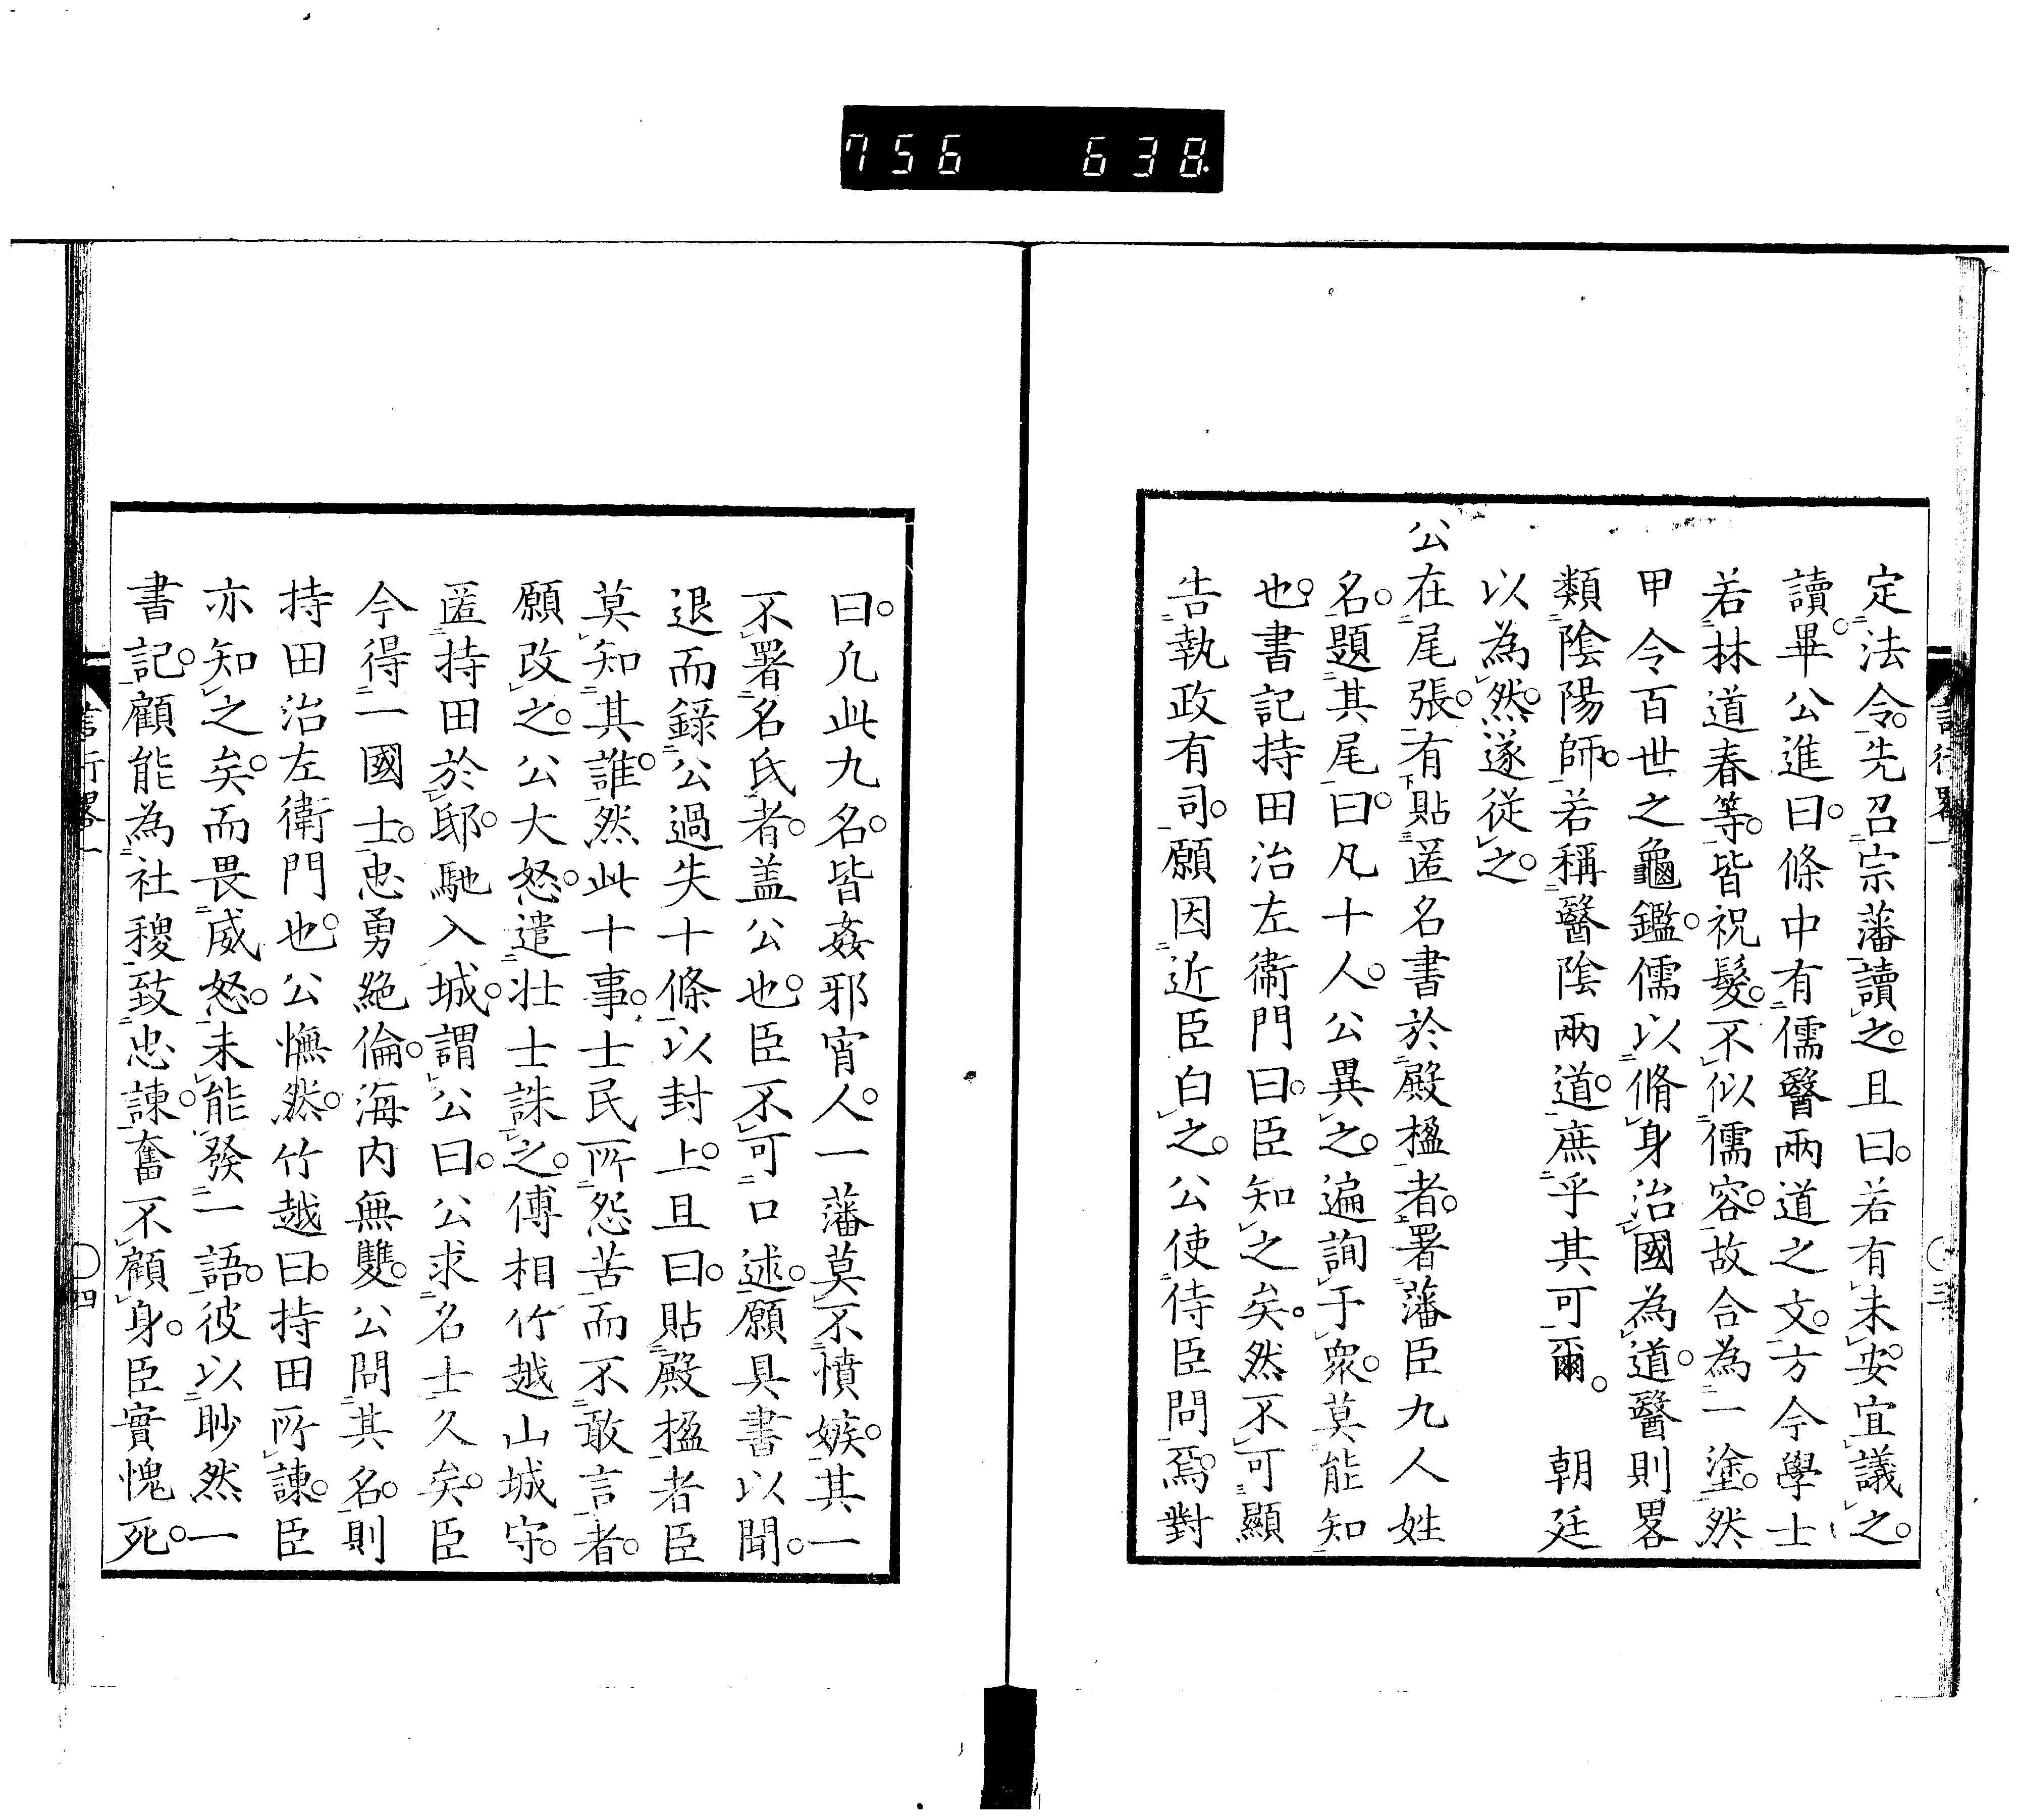 756 638.
定法令。先召宗藩讀之。且曰。若有未安。宜議之。
讀。畢公進曰。條中有儒醫兩道之文。方今學士
若林道春等。皆祝髮。不似儒容。故合為一塗。然
甲令百世之龜鑑。儒以脩身治國為道。醫則畧
類陰陽師。若稱醫陰兩道。庶乎其可爾。 朝廷
以為然。遂從之。
公在尾張。有貼匿名書於殿楹者。署藩臣九人姓
名。題其尾曰。凡十人。公異之。遍詢于衆。莫能知
也。書記持田治左衞門曰。臣知之矣。然不可顯
告執政有司。願因近臣白之。公使侍臣問焉。對
曰。凢此九名。皆姦邪宵人。一藩莫不憤嫉。其一
不署名氏者。盖公也。臣不可口述。願具書以聞。
退而錄公過失十條。以封上。且曰。貼殿楹者臣
莫知其誰。然此十事。士民所怨苦而不敢言者。
願改之。公大怒。遣壮士誅之。傅相竹越山城守。
匿持田於邸。馳入城。謂公曰。公求名士久矣。臣
今得一國士。忠勇絶倫。海内無雙。公問其名。則
持田治左衛門也。公憮然。竹越曰。持田所諫。臣
亦知之矣。而畏威怒。未能發一語。彼以眇然一
書記。顧能為社稷致忠諫。奮不顧身。臣實愧死。
言行畧一
三
言行畧一
四